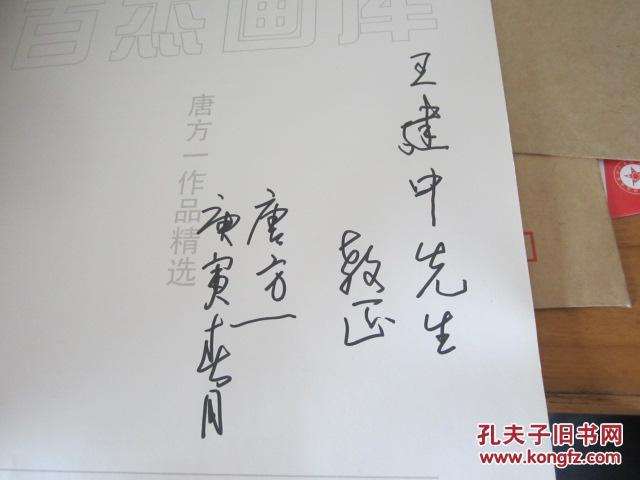 百杰画库
唐方一作品精选
王建中先生
教正
唐方一
庚寅春月
孔夫子旧书网
www.kongfz.com